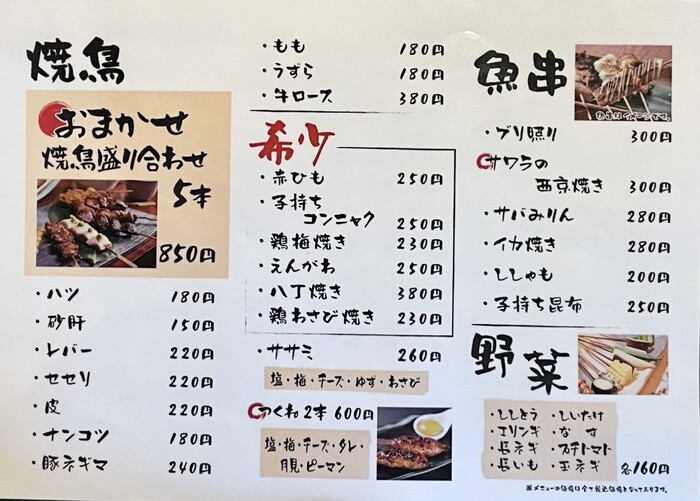 焼鳥
おまかせ
焼鳥盛り合わせ
5本
850円
・ハツ 180円
・砂肝 150円
・レバー 220円
・セセリ 220円
・皮 220円
・ナンコツ 180円
・豚ネギマ 240円
・もも 180円
・うずら 180円
・牛ロース 380円
希少
・赤ひも 250円
・子持ち
コンニャク 250円
・鶏梅焼き 230円
・えんがわ 250円
・八丁焼き 380円
・鶏わさび焼き 230円
・ササミ 260円
塩・梅・チーズ・ゆず・わさび
つくね2本 600円
塩・梅・チーズ・タレ・
月見・ピーマン
魚串
・ブリ照り 300円
サワラの
西京焼き 300円
・サバみりん 280円
・イカ焼き 280円
・ししゃも 200円
・子持ち昆布 250円
野菜
・ししとう ・しいたけ
・エリンギ ・なす
・長ネギ ・プチトマト
・長いも ・玉ネギ
各160円
※メニューの価格は全て税込価格となっております。